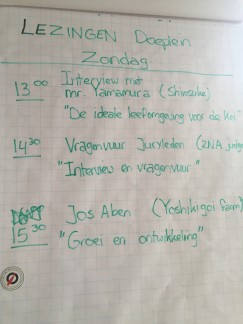 LEZINGEN
Zondag
13 00 Interview met
mr. Yamamura (Shinsuke)
"De ideale leefomgeving voor de Koi"
14 30 Vragenvuur Juryleden (ZNA
"Interview en vragenvuur"
Jos Aben (Yoshikigoi farm)
15 30 "Groei en ontwikkeling"